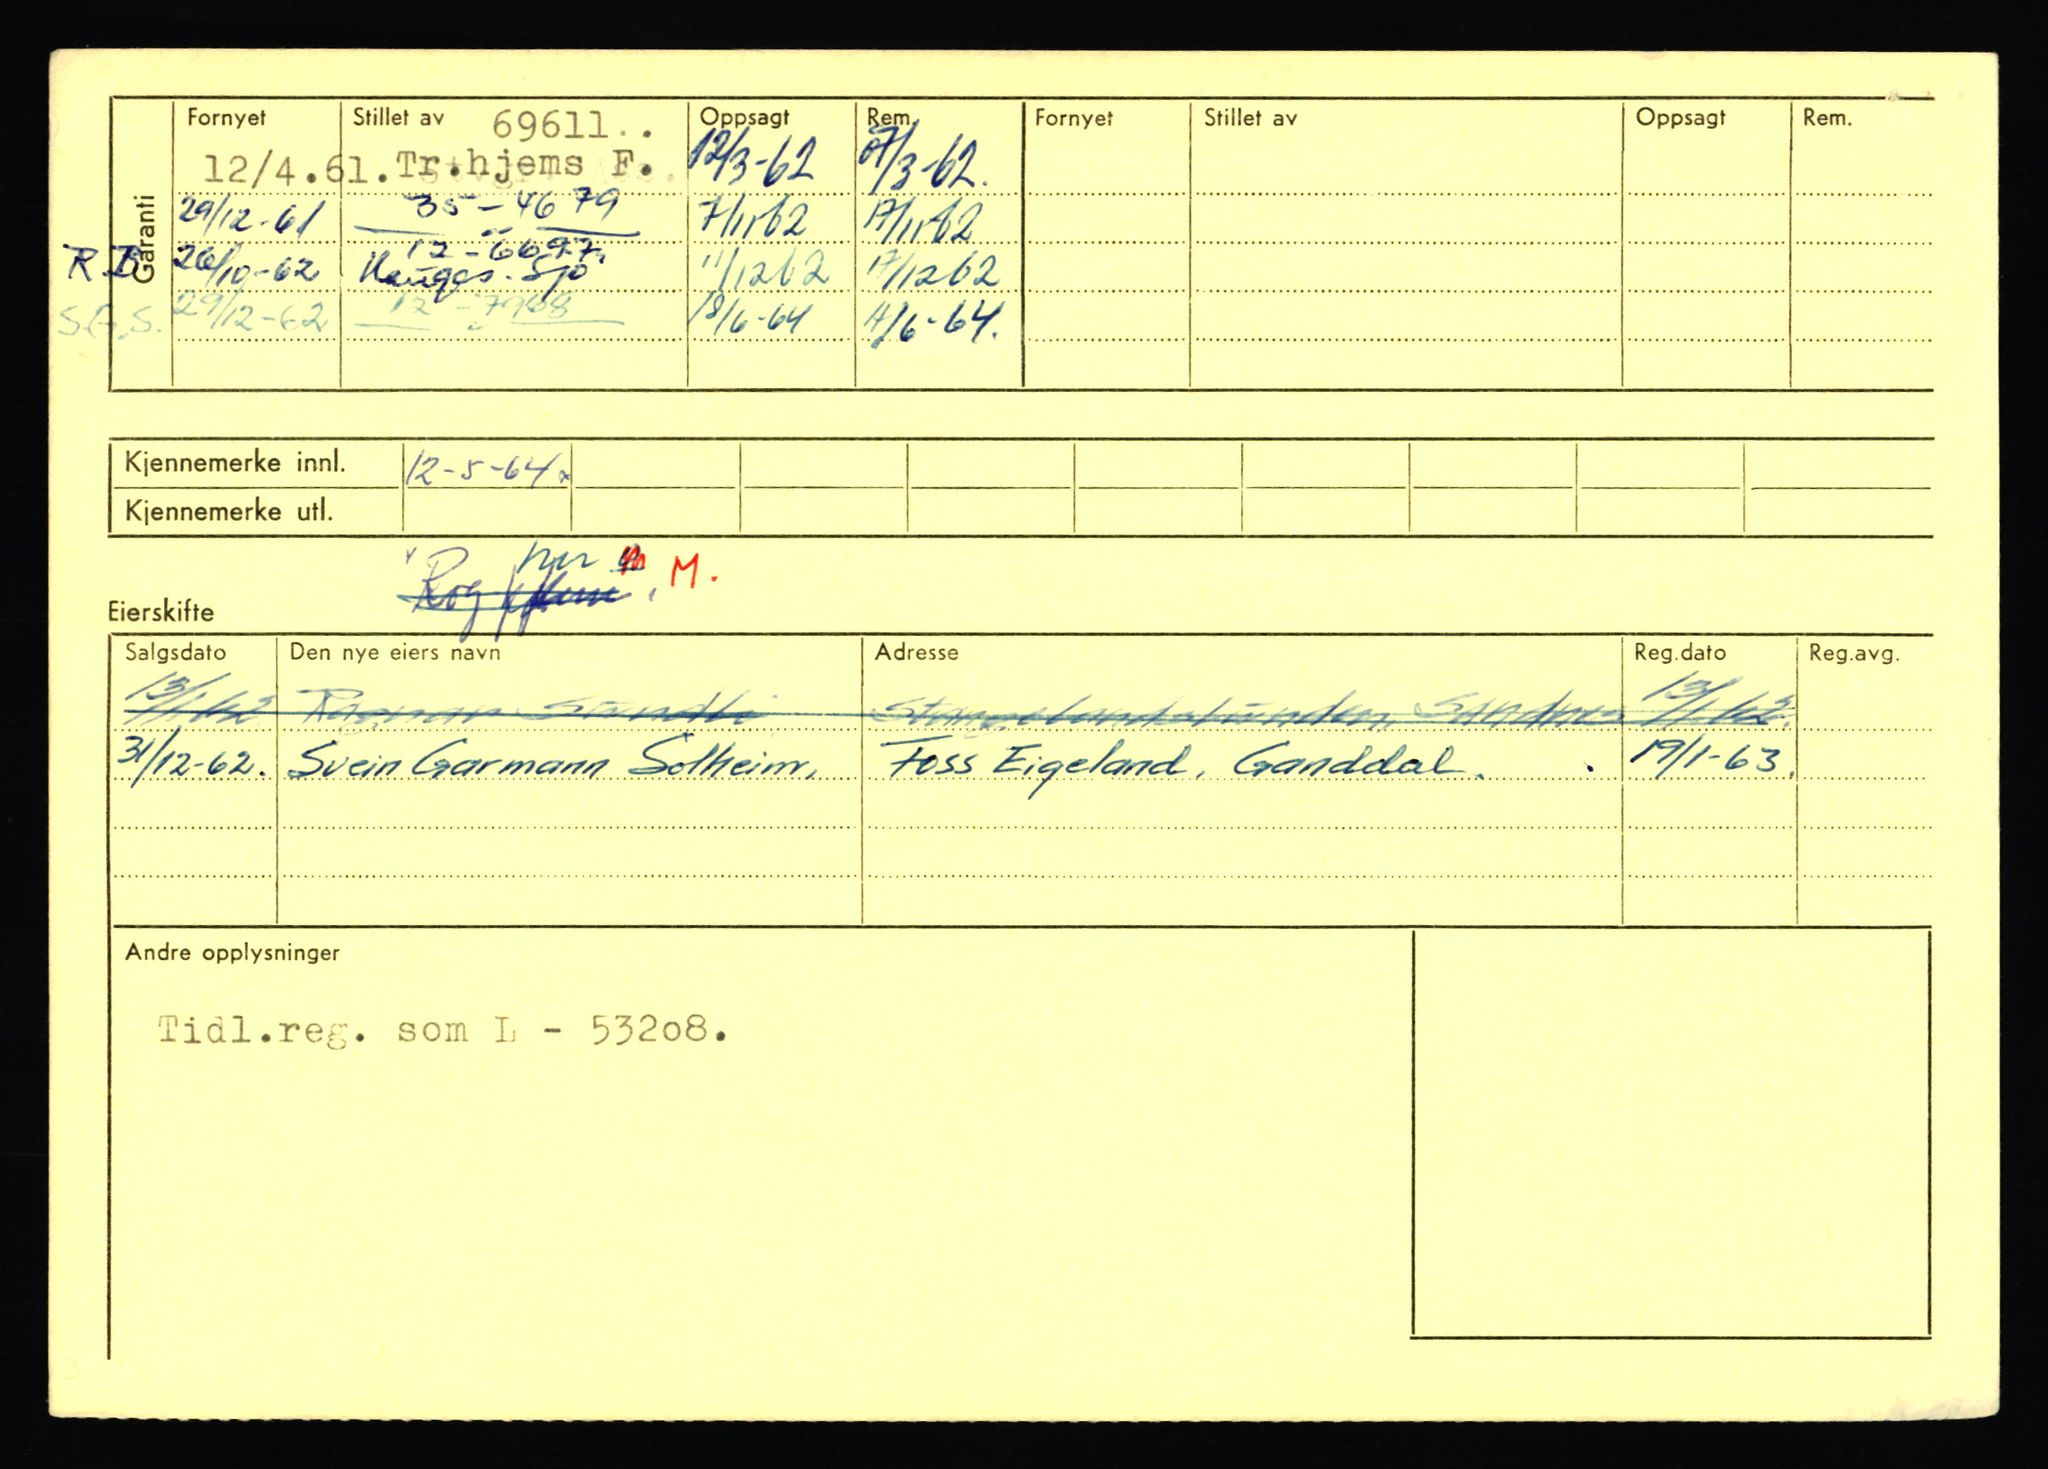 Garanti
Fornyet Stillet av Oppsagt Rem. Fornyet Stillet av Oppsagt Rem.
69611..
12/4.61. Tr.hjems F. 12/3-62 /3-62.
29/12-61 35-4679 7/11 62 17/11-62
12-6697.
R.B. 26/10-62 Hauges. Sjø 11/12 62 17/12 62
S.G.S. 29/12-62 12-7968 18/6-64 /6-64.
Kjennemerke innl. 12-5-64
Kjennemerke utl.
M.
Eierskifte
Salgsdato Den nye eiers navn Adresse Reg.dato Reg.avg.
13/1 62 Ragnar Sandli Stangelandstunden, Sandnes 13/1 62.
31/12-62. Svein Garmann Solheim, Foss Eigeland, Ganddal. 19/1-63.
Andre opplysninger
Tidl.reg. som L - 53208.